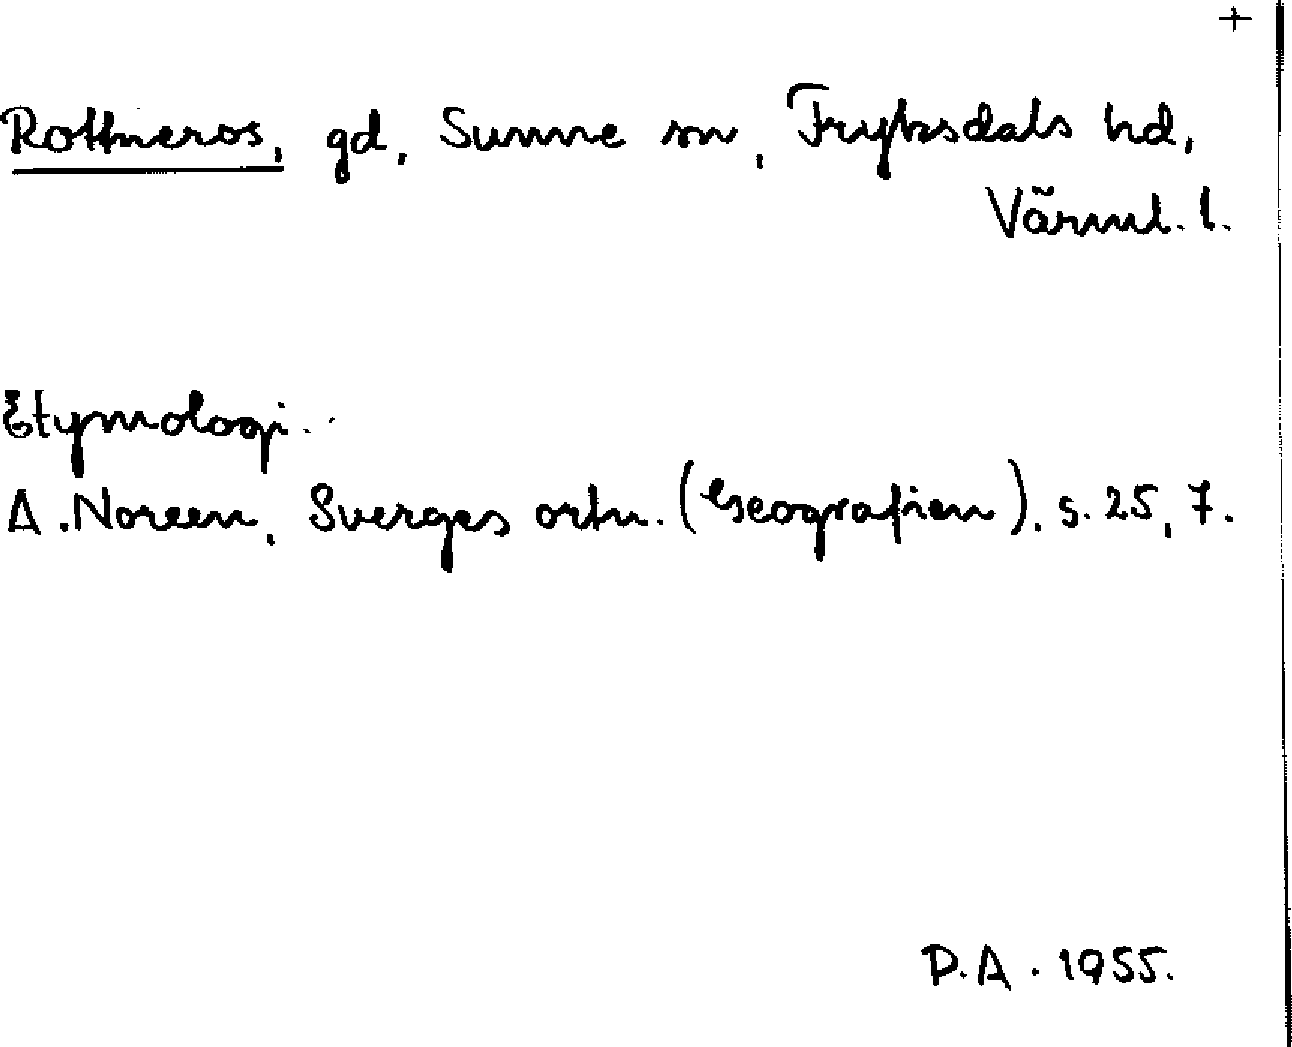 +
Rottneros, gd, Sunne sn, Fryksdals hd,
Värml. l.
Etymologi.
A. Noreen, Sverges ortn. (Geografien). s. 25, 7.
P.A. 1955.